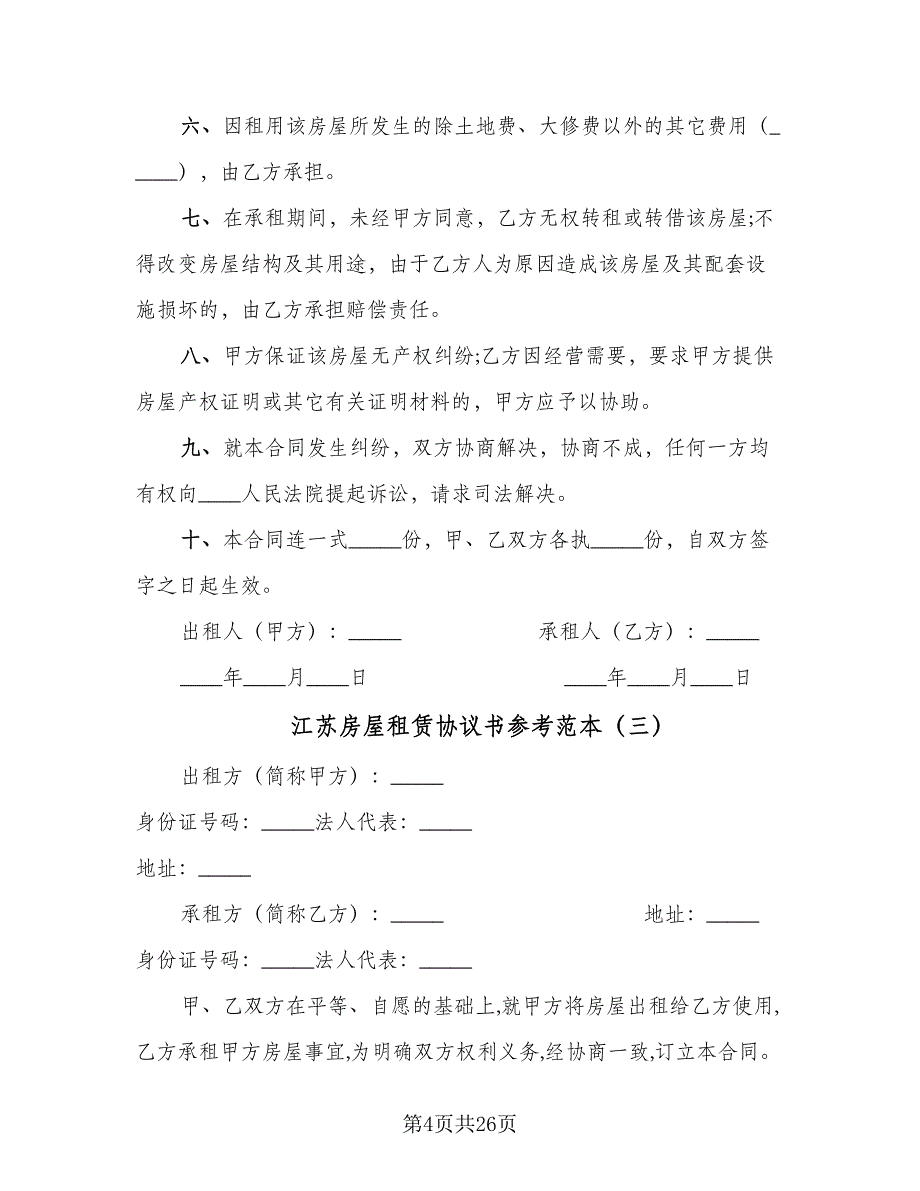 六、因租用该房屋所发生的除土地费、大修费以外的其它费用（_
____），由乙方承担。
七、在承租期间，未经甲方同意，乙方无权转租或转借该房屋;不
得改变房屋结构及其用途，由于乙方人为原因造成该房屋及其配套设
施损坏的，由乙方承担赔偿责任。
八、甲方保证该房屋无产权纠纷;乙方因经营需要，要求甲方提供
房屋产权证明或其它有关证明材料的，甲方应予以协助。
九、就本合同发生纠纷，双方协商解决，协商不成，任何一方均
有权向____人民法院提起诉讼，请求司法解决。
十、本合同连一式_____份，甲、乙双方各执_____份，自双方签
字之日起生效。
出租人（甲方）：_____ 承租人（乙方）：_____
____年____月____日 ____年____月____日
江苏房屋租赁协议书参考范本（三）
出租方（简称甲方）：_____
身份证号码：_____法人代表：_____
地址：_____
承租方（简称乙方）：_____ 地址：_____
身份证号码：_____法人代表：_____
甲、乙双方在平等、自愿的基础上,就甲方将房屋出租给乙方使用,
乙方承租甲方房屋事宜,为明确双方权利义务,经协商一致,订立本合同。
第4页共26页